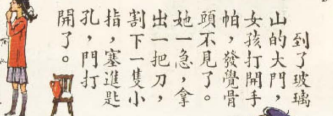 到了玻璃
山的大門，
女孩打開手
帕，發覺骨
頭不見了。
她一急，拿
出一把刀，
割下一隻小
指，塞進匙
孔，門打
開了。